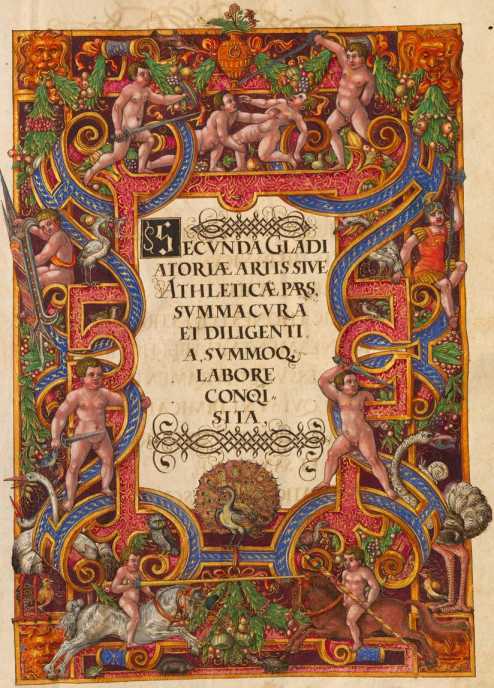 SECVNDA GLADI
ATORIÆ ARTIS SIVE
ATHLETICÆ PARS,
SVMMA CVRA
ET DILIGENTI
A, SVMMOQ,
LABORE
CONQI-
SITA.